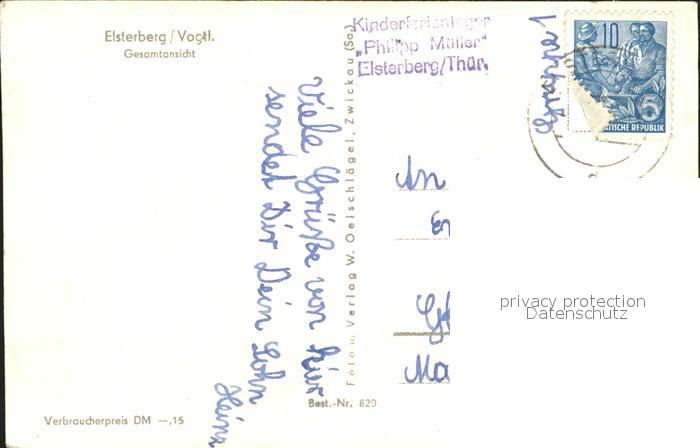 Elsterberg / Vogtl.
Gesamtansicht
Kinderferienlager
"Philipp Müller"
Elsterberg/Thür.
Gruppe 1
10
5
TISCHE REPUBLIK
Viele Grüße von hier
sendet Dir Dein Sohn
Heinz
Foto u. Verlag W. Oelschlägel, Zwickau (Sa.)
An
Ma
privacy protection
Datenschutz
Verbraucherpreis DM —,15
Best.-Nr. 820